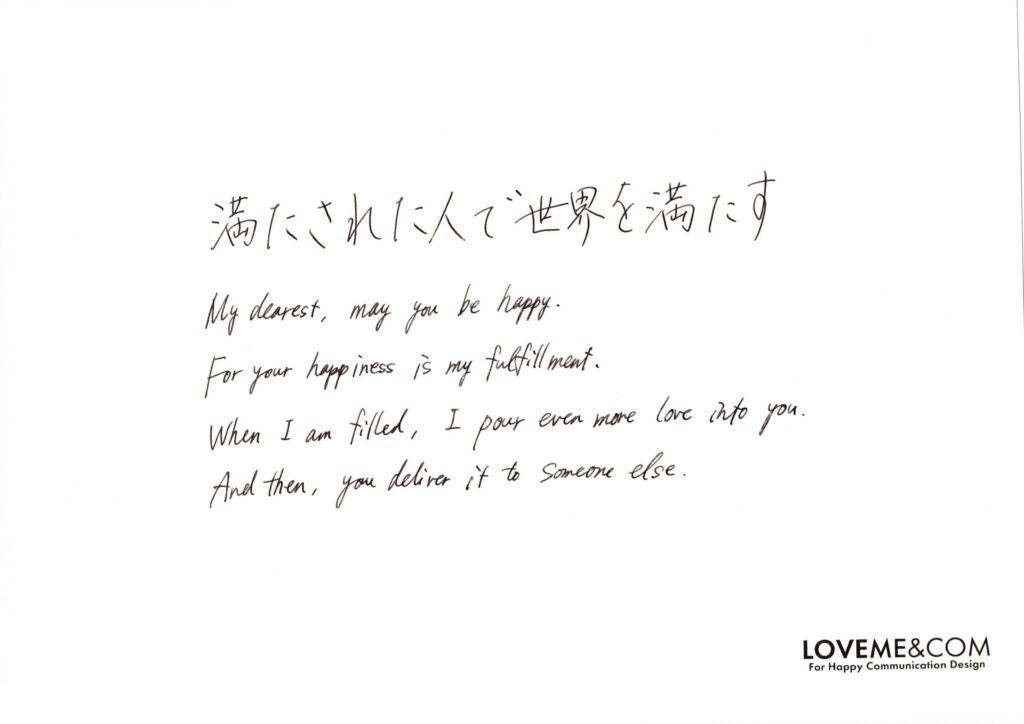 満たされた人で世界を満たす
My dearest, may you be happy.
For your happiness is my fulfillment.
When I am filled, I pour even more love into you.
And then, you deliver it to someone else.
LOVEME&COM
For Happy Communication Design